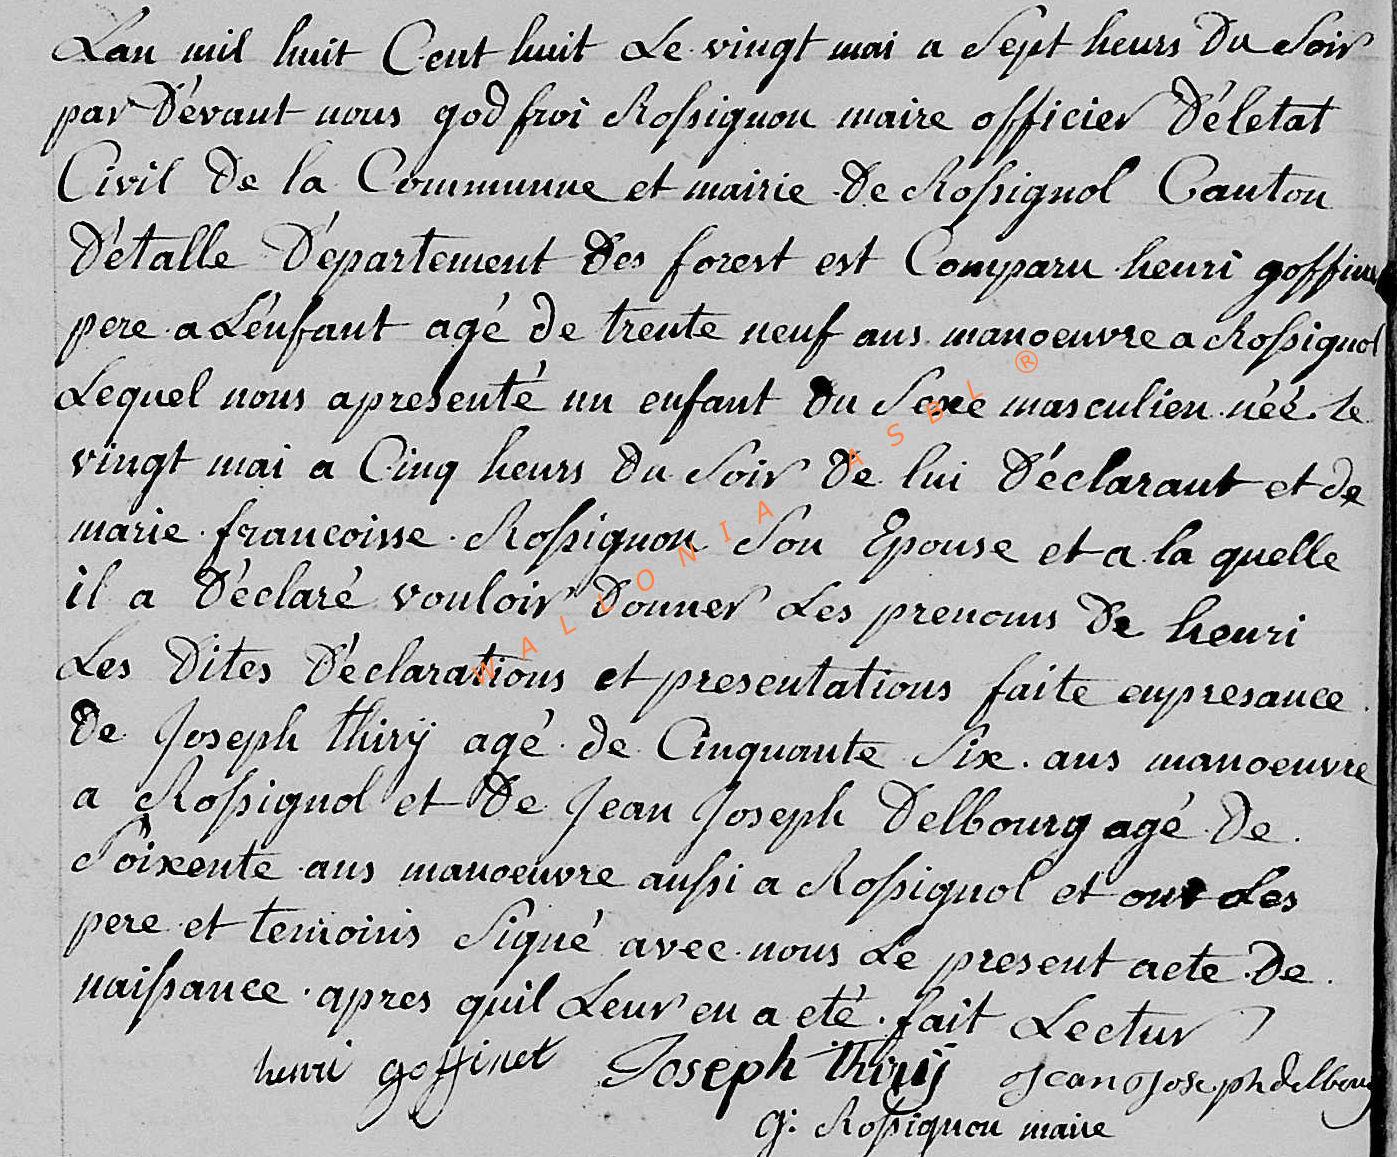 Lan mil huit Cent huit Le vingt mai a Sept heurs Du Soir
par D'évant nous godfroi Rossignon maire officier D'életat
Civil De la Communne et mairie De Rossignol Canton
D'étalle D'épartement Des forest est Comparu henri goffinet
pere a L'énfant agé de trente neuf ans manoeuvre a Rossignol
Lequel nous apresenté un enfant Du Sexe masculien néé le
vingt mai a Cinq heurs Du Soir De lui D'éclarant et de
marie francoisse Rossignon Son Epouse et a la quelle
il a D'éclaré vouloir Donner Les prenoms De henri
Les Dites D'éclarations et presentations faite enpresance
De Joseph thirÿ agé de Cinquante Six ans manoeuvre
a Rossignol et De Jean Joseph Delbourg agé De
Soixente ans manoeuvre aussi a Rossignol et ont Les
pere et temoins Signé avec nous Le present acte De
naissance apres quil Leur en a eté fait Lectur
henri goffinet Joseph thirÿ Jean Joseph delbourg
g: Rossignon maire
WALLONIA ASBL ®